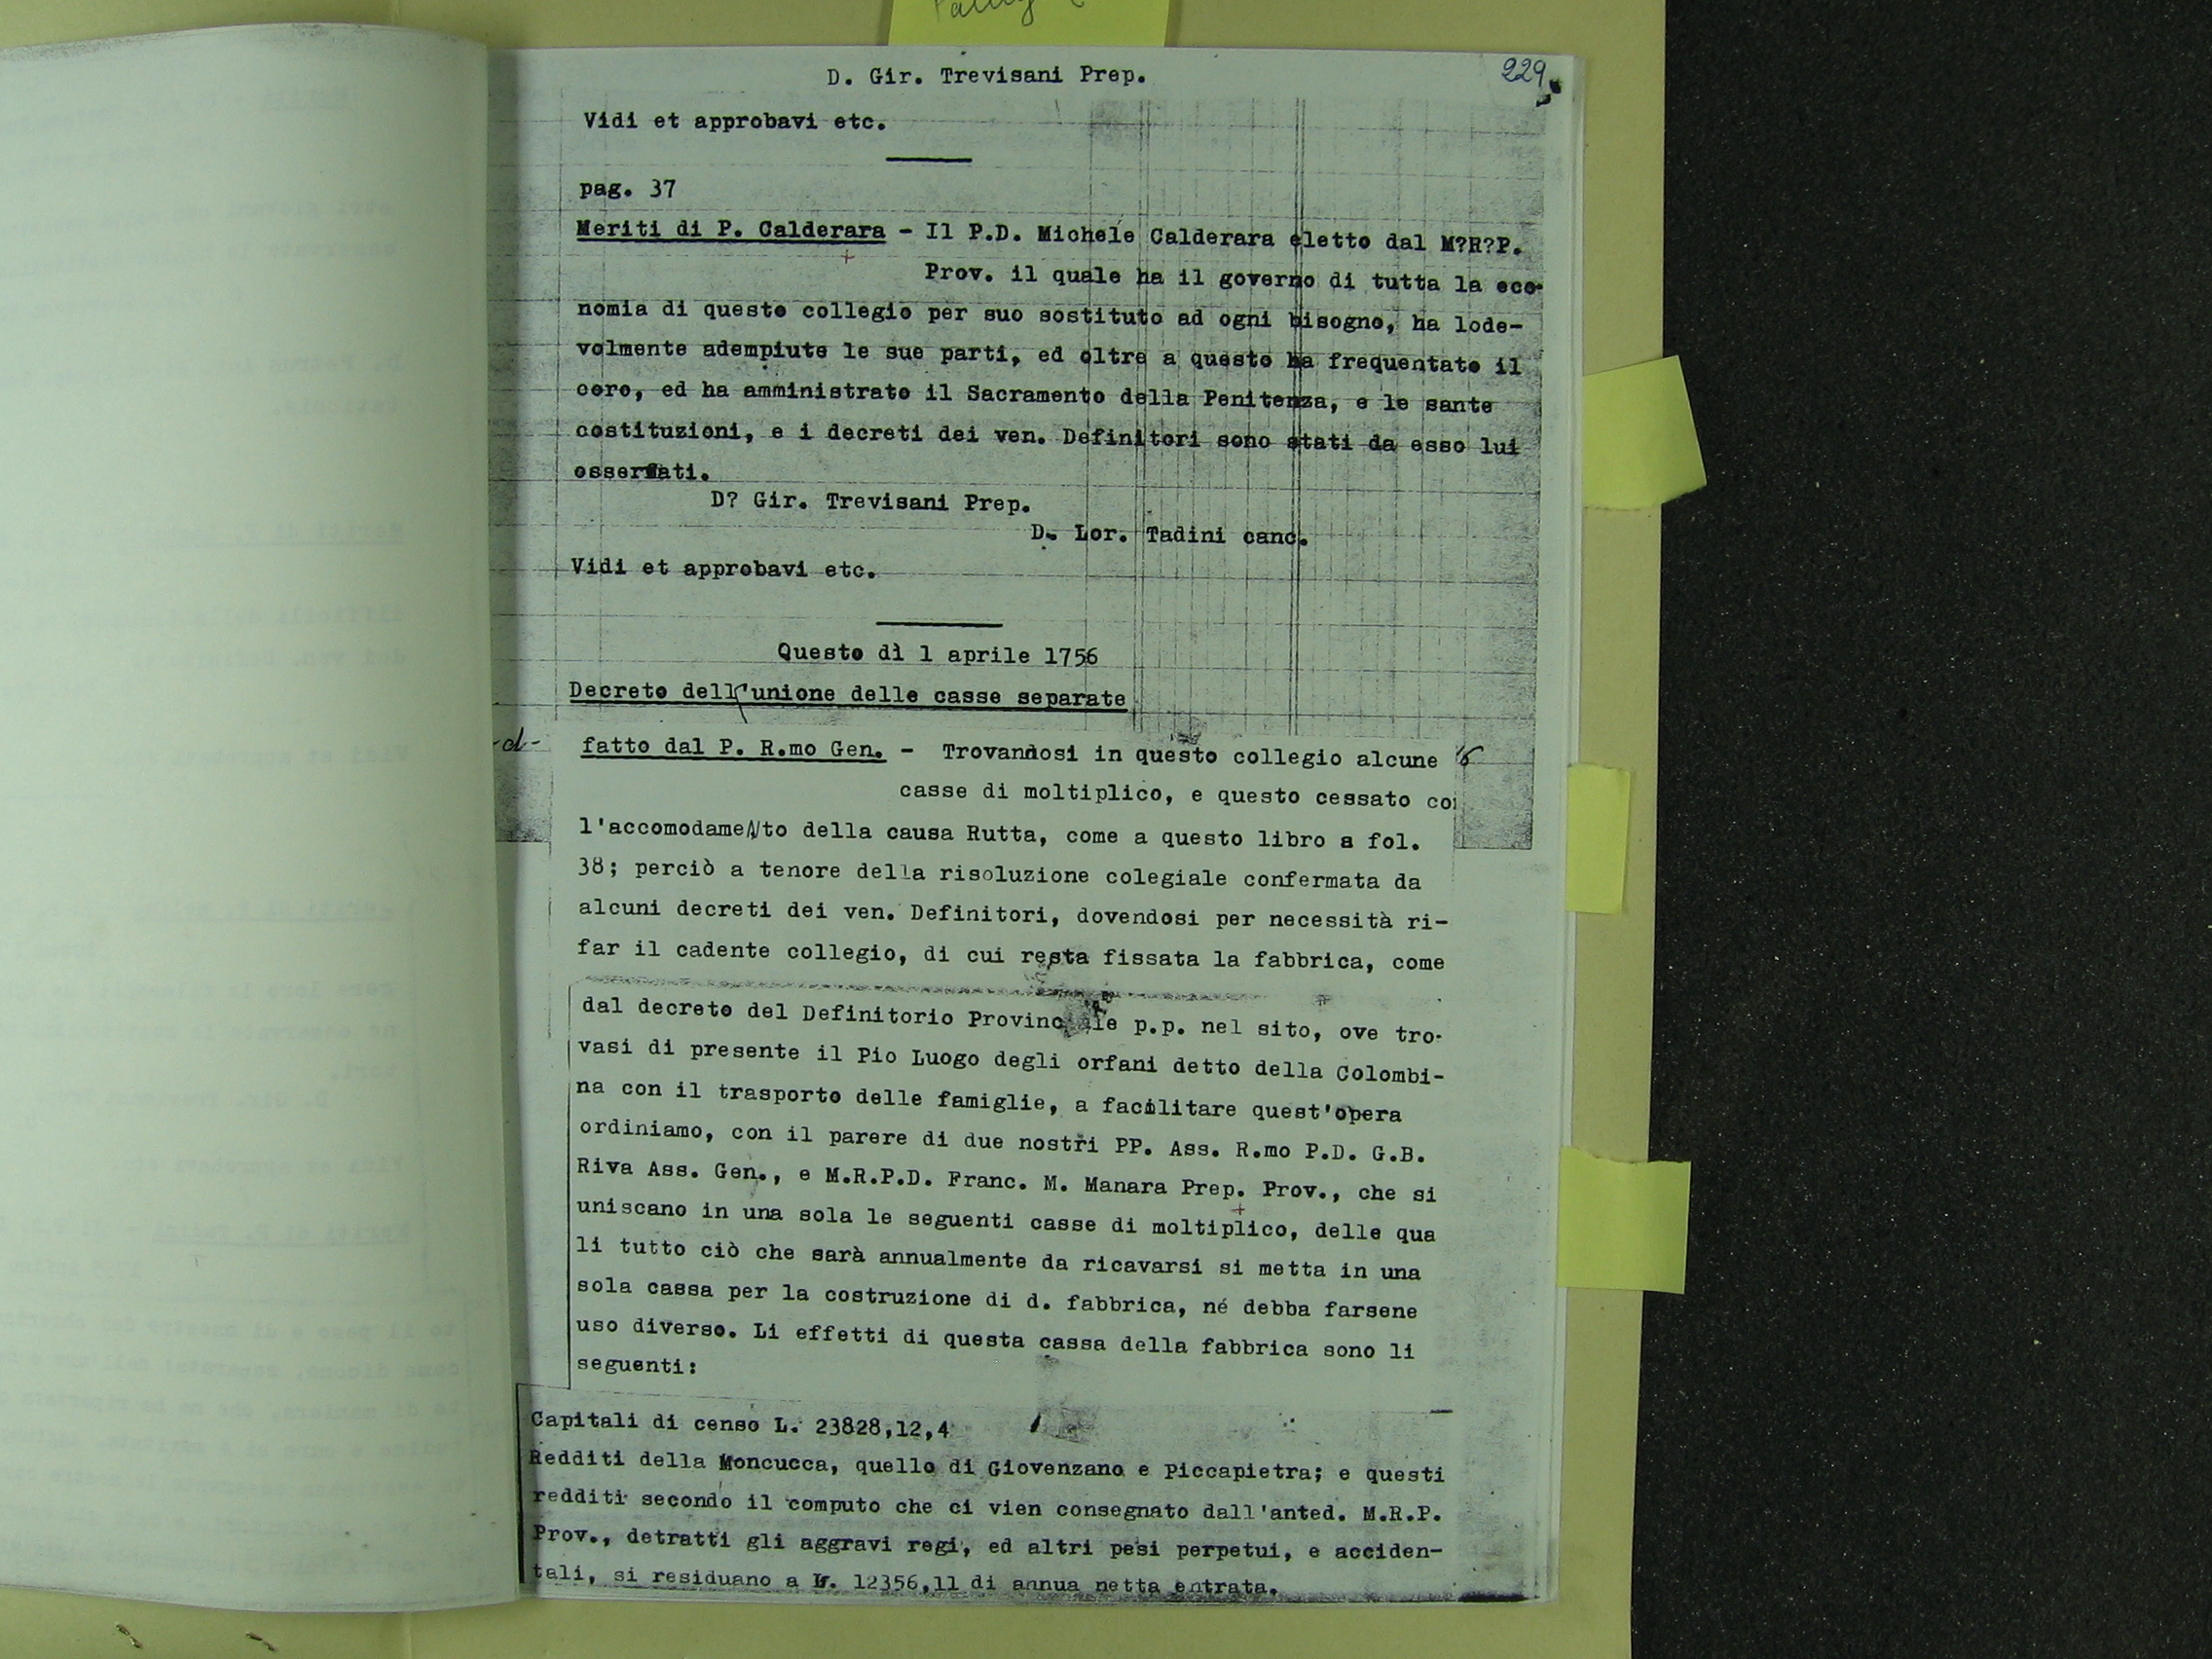 229
D. Gir. Trevisani Prep.
Vidi et approbavi etc.
pag. 37
Meriti di P. Calderara - Il P.D. Michele Calderara eletto dal M?R?P.
Prov. il quale ha il governo di tutta la eco-
nomia di questo collegio per suo sostituto ad ogni bisogno, ha lode-
volmente adempiute le sue parti, ed oltre a questo ha frequentato il
coro, ed ha amministrato il Sacramento della Penitenza, e le sante
costituzioni, e i decreti dei ven. Definitori sono stati da esso lui
osservati.
D? Gir. Trevisani Prep.
D. Lor. Tadini canc.
Vidi et approbavi etc.
Questo dì 1 aprile 1756
Decreto dell'unione delle casse separate
-d-
fatto dal P. R.mo Gen. - Trovandosi in questo collegio alcune
casse di moltiplico, e questo cessato co
l'accomodameNto della causa Rutta, come a questo libro a fol.
38; perciò a tenore della risoluzione colegiale confermata da
alcuni decreti dei ven. Definitori, dovendosi per necessità ri-
far il cadente collegio, di cui resta fissata la fabbrica, come
dal decreto del Definitorio Provinciale p.p. nel sito, ove tro-
vasi di presente il Pio Luogo degli orfani detto della Colombi-
na con il trasporto delle famiglie, a facilitare quest'opera
ordiniamo, con il parere di due nostri PP. Ass. R.mo P.D. G.B.
Riva Ass. Gen., e M.R.P.D. Franc. M. Manara Prep. Prov., che si
uniscano in una sola le seguenti casse di moltiplico, delle qua
li tutto ciò che sarà annualmente da ricavarsi si metta in una
sola cassa per la costruzione di d. fabbrica, né debba farsene
uso diverso. Li effetti di questa cassa della fabbrica sono li
seguenti:
Capitali di censo L. 23828,12,4
Redditi della Moncucca, quello di Giovenzano e Piccapietra; e questi
redditi secondo il computo che ci vien consegnato dall'anted. M.R.P.
Prov., detratti gli aggravi regi, ed altri pesi perpetui, e acciden-
tali, si residuano a L. 12356,11 di annua netta entrata.